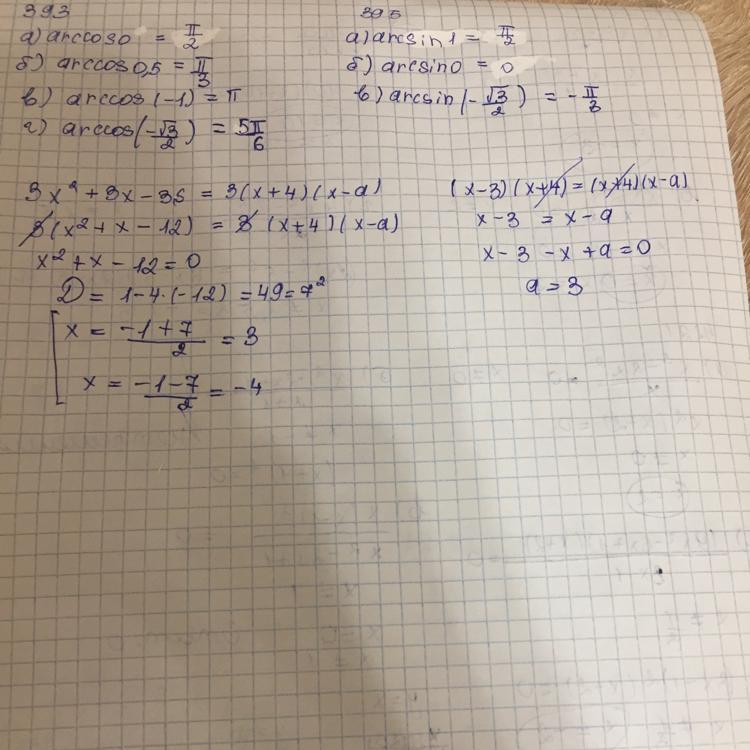 393
а) arccos0 = π/2
б) arccos0,5 = π/3
в) arccos(-1) = π
г) arccos(-√3/2) = 5π/6
395
а) arcsin1 = π/2
б) arcsin0 = 0
в) arcsin(-√3/2) = -π/3
3x² + 3x - 36 = 3(x+4)(x-a)
3(x² + x - 12) = 3(x+4)(x-a)
x² + x - 12 = 0
D = 1-4·(-12) = 49 = 7²
x = -1+7/2 = 3
x = -1-7/2 = -4
(x-3)(x+4) = (x+4)(x-a)
x-3 = x-a
x-3-x+a=0
a=3